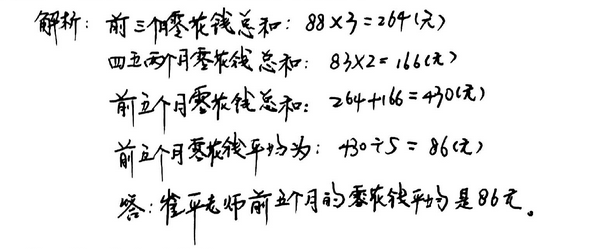 解析：前三个月零花钱总和：88×3=264(元)
四五两个月零花钱总和：83×2=166(元)
前五个月零花钱总和：264+166=430(元)
前五个月零花钱平均为：430÷5=86(元)
答：崔平老师前五个月的零花钱平均是86元。